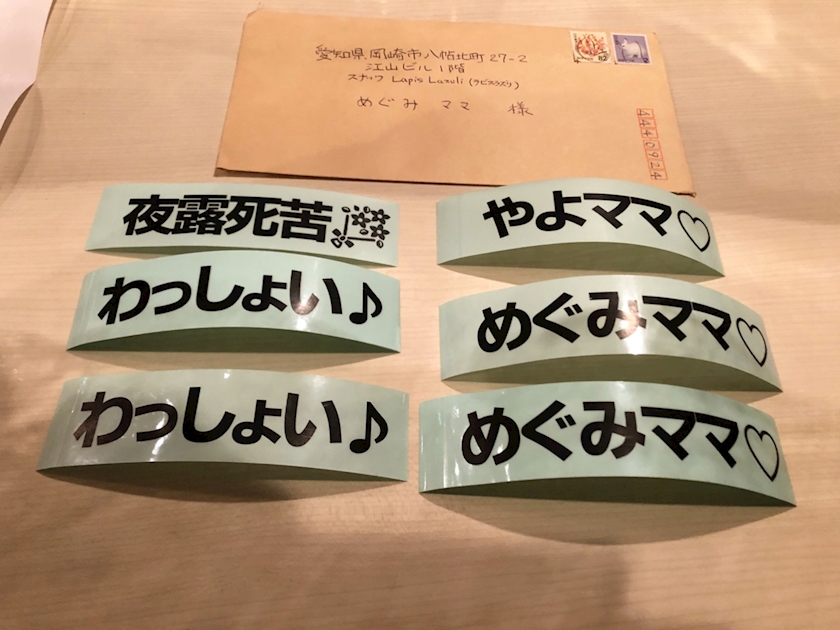 愛知県岡崎市八帖北町27-2
江山ビル1階
スナック Lapis Lazuli (ラピスラズリ)
めぐみ ママ 様
4440924
夜露死苦
やよママ♡
わっしょい♪
めぐみママ♡
わっしょい♪
めぐみママ♡